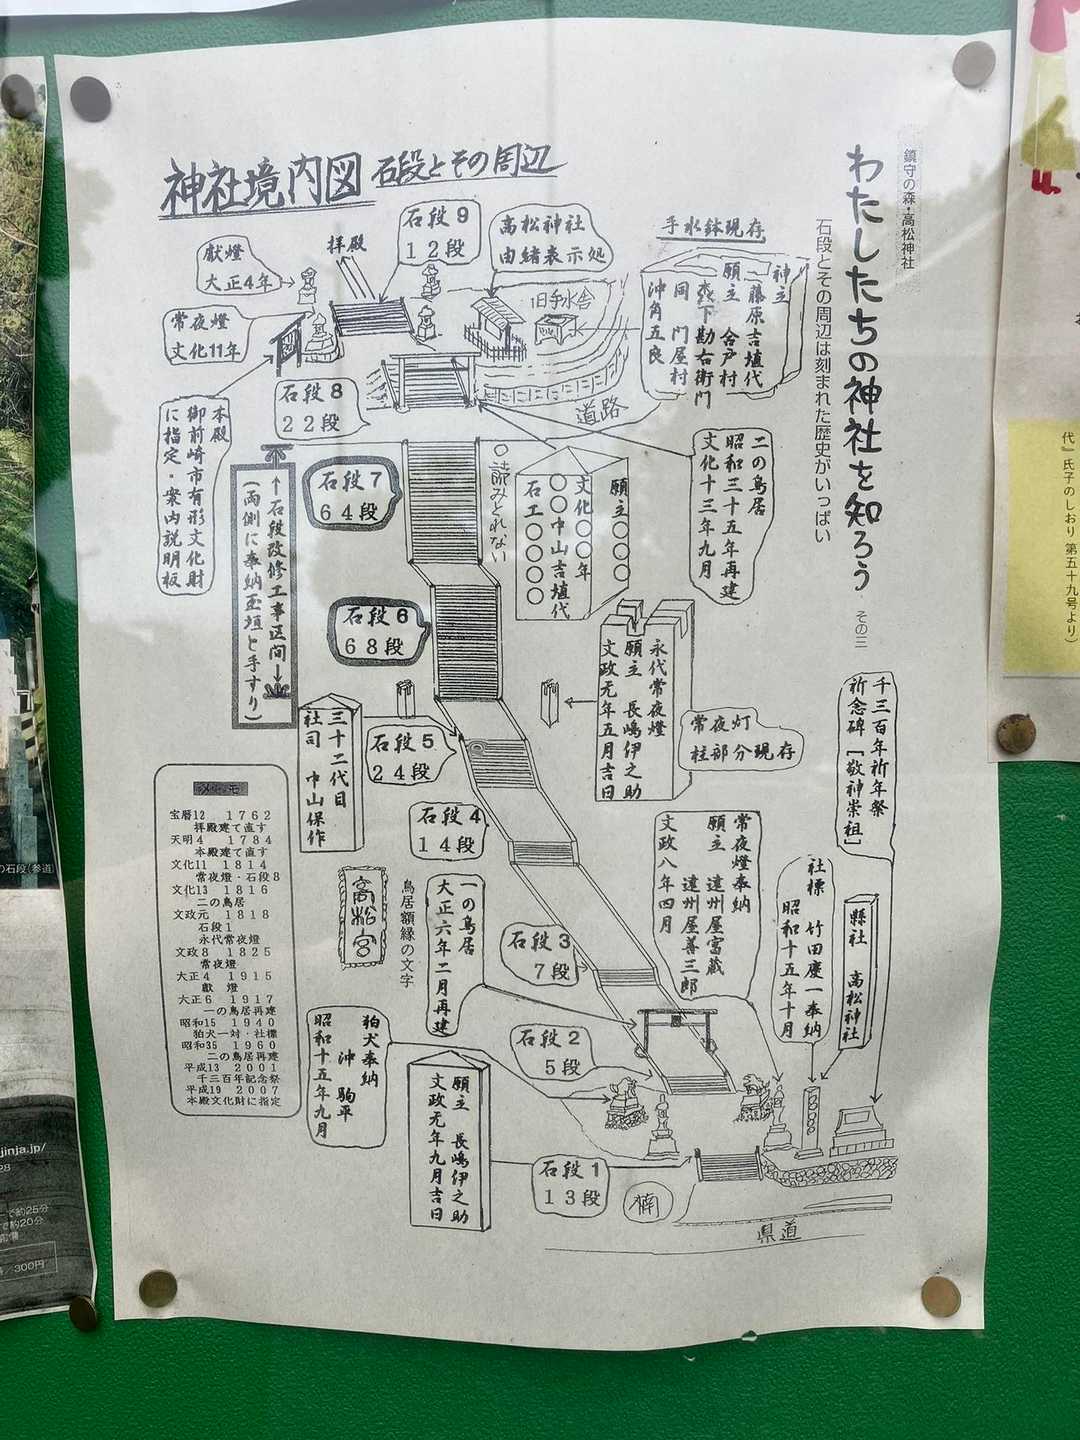 鎮守の森・高松神社
わたしたちの神社を知ろう その三
石段とその周辺は刻まれた歴史がいっぱい
神社境内図 石段とその周辺
手水鉢現存
神主
藤原吉埴代
願主 合戸村
森下勘右衛門
同 門屋村
沖角五良
高松神社
由緒表示処
旧手水舎
水
道路
石段9
12段
拝殿
献燈
大正4年
常夜燈
文化11年
石段8
22段
本殿
御前崎市有形文化財
に指定・案内説明板
二の鳥居
昭和三十五年再建
文化十三年九月
願主〇〇〇
文化〇〇年
〇〇中山吉埴代
石工〇〇〇〇
〇読みとれない
石段7
64段
←石段改修工事区間→
(両側に奉納玉垣と手すり)
石段6
68段
永代常夜燈
願主 長嶋伊之助
文政元年五月吉日
常夜灯
柱部分現存
三十二代目
社司 中山保作
石段5
24段
石段4
14段
千三百年祈年祭
祈念碑[敬神崇祖]
常夜燈奉納
願主 遠州屋富蔵
遠州屋善三郎
文政八年四月
社標 竹田慶一奉納
昭和十五年十月
縣社 高松神社
高松宮
鳥居額縁の文字
一の鳥居
大正六年二月再建
石段3
7段
石段2
5段
狛犬奉納
沖 駒平
昭和十五年九月
願主 長嶋伊之助
文政元年九月吉日
石段1
13段
楠
県道
メモ
宝暦12 1762
拝殿建て直す
天明4 1784
本殿建て直す
文化11 1814
常夜燈・石段8
文化13 1816
二の鳥居
文政元 1818
石段1
永代常夜燈
文政8 1825
常夜燈
大正4 1915
献 燈
大正6 1917
一の鳥居再建
昭和15 1940
狛犬一対・社標
昭和35 1960
二の鳥居再建
平成13 2001
千三百年記念祭
平成19 2007
本殿文化財に指定
の石段(参道)
jinja.jp/
28
で約25分
で約20分
300円
代』氏子のしおり 第五十九号より)